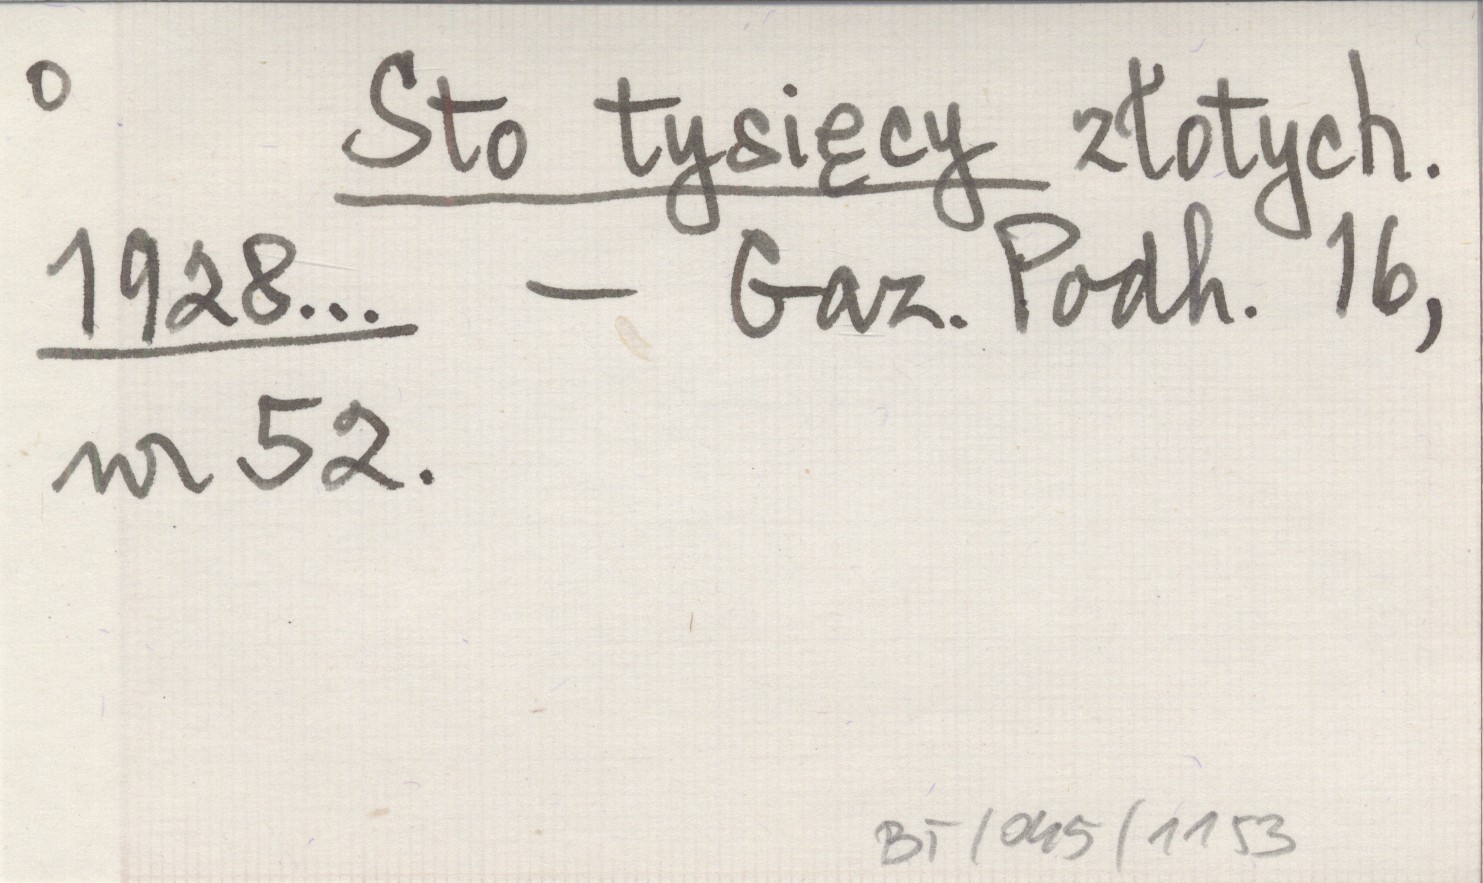 o Sto tysięcy złotych.
1928... – Gaz. Podh. 16,
nr 52.
BT/045/1153